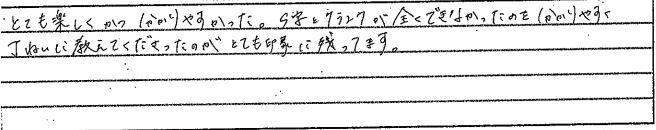 とても楽しくかつ分かりやすかった。S字とクランクが全くできなかったのを分かりやすく
丁ねいに教えてくださったのがとても印象に残ってます。